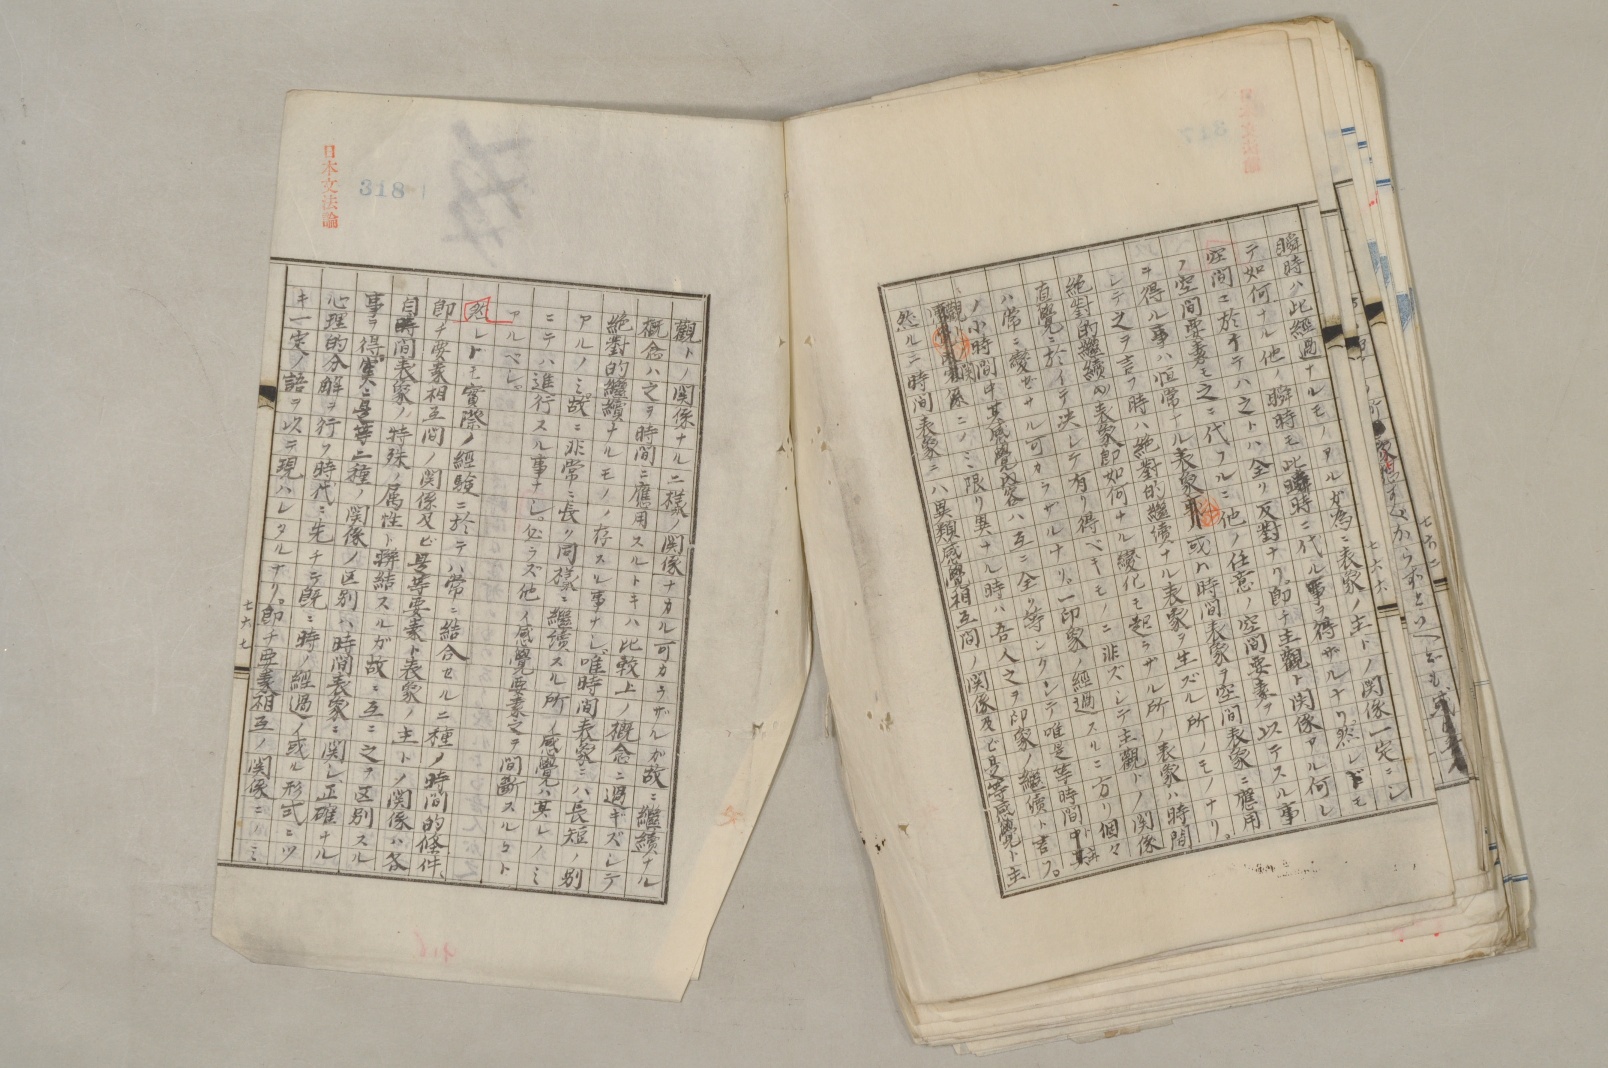 瞬時ハ此經過ナルモノアルガ為ニ表象ノ主トノ関係一定ニシ
テ如何ナル他ノ瞬時モ此瞬時ニ代ル事ヲ得ザルナリ然レトモ
空間ニ於テハ之トハ全ク反對ナリ。即チ主觀ト関係アル何レ
ノ空間要素モ之ニ代フルニ他ノ任意ノ空間要素ヲ以テスル事
ヲ得ル事ハ恒常ナル表象 或ハ時間表象ヲ空間表象ニ應用
シテ之ヲ言フ時ハ絶對的繼續ナル表象ヲ生ズル所ノモノナリ。
絶對的繼續ノ表象即如何ナル變化モ起ラザル所ノ表象ハ時間
直覺ニ於イテ決シテ有リ得ベキモノニ非ズシテ主觀トノ関係
ハ常ニ變セサル可カラザルナリ。一印象ノ經過スルニ方リ個々
ノ小時間中其感覺内容ハ互ニ全ク等シクシテ唯是等時間中其
觀トノ関係ニノミ限リ異ナル時ハ吾人之ヲ印象ノ繼續ト言フ。
然ルニ時間表象ニハ異類感覺相互間ノ関係及ビ是等感覺ト主
日本文法論
318
觀トノ関係ナル二樣ノ関係ナカル可カラザルガ故ニ繼續ナル
概念ハ之ヲ時間ニ應用スルトキハ比較上ノ概念ニ過ギズシテ
絶對的繼續ナルモノノ存スル事ナシ、唯時間表象ニハ長短ノ別
アルノミ。故ニ非常ニ長ク同樣ニ繼續スル所ノ感覺ハ其レノミ
ニテハ進行スル事ナシ。必ラズ他ノ感覺要素之ヲ間斷スルコト
アルベシ。
然レトモ實際ノ經驗ニ於テハ常ニ結合セル二種ノ時間的條件、
即チ要素相互間ノ関係及ビ是等要素ト表象ノ主トノ関係ハ各
自時間表象ノ特殊ノ属性ト聯結スルガ故ニ互ニ之ヲ区別スル
事ヲ得。實ニ是等二種ノ関係ノ区別ハ時間表象ニ関シ正確ナル
心理的分解ヲ行フ時代ニ先チテ既ニ時ノ經過ノ或ル形式ニツ
キ一定ノ語ヲ以テ現ハレタルナリ。即チ要素相互ノ関係ニノミ
七六七